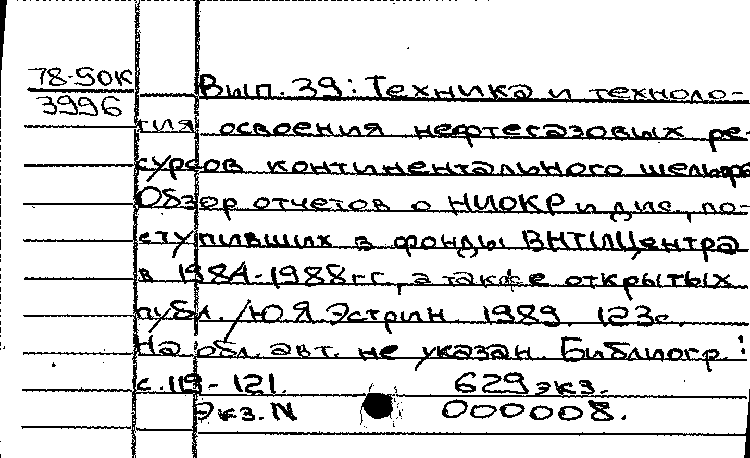 78-50К
3996
Вып. 39: Техника и техноло-
гия освоения нефтегазовых ре-
сурсов континентального шельфа
Обзор отчетов о НИОКР и дис., по-
ступивших в фонды ВНТИЦентра
в 1984-1988гг., а также открытых
публ. /Ю.Я.Эстрин. 1989. 123с.
На обл. авт. не указан. Библиогр.:
с.119-121. 629экз.
Экз.N 000008.